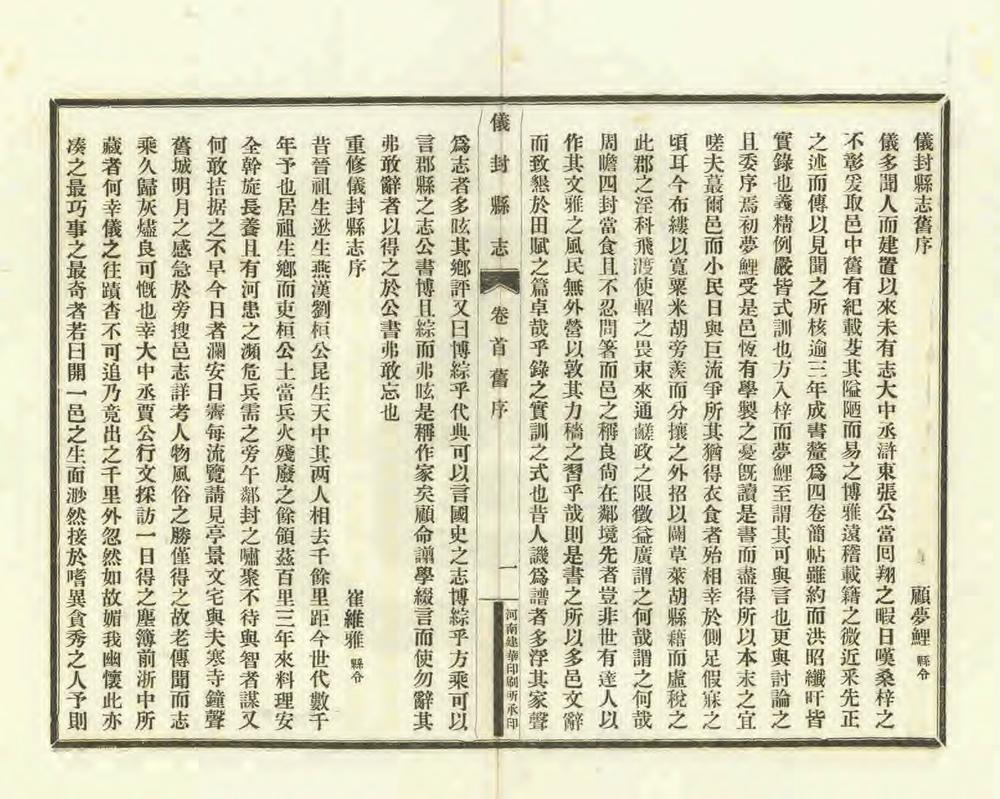 儀封縣志舊序
顧夢鯉 縣令
儀多聞人而建置以來未有志大中丞滸東張公當囘翔之暇日嘆桑梓之
不彰爰取邑中舊有紀載芟其隘陋而易之博雅遠稽載籍之微近釆先正
之述而傳以見聞之所核逾三年成書釐爲四卷簡帖雖約而洪昭纖旰皆
實錄也義精例嚴皆式訓也方入梓而夢鯉至謂其可與言也更與討論之
且委序焉初夢鯉受是邑恆有學製之憂旣讀是書而盡得所以本末之宜
嗟夫蕞爾邑而小民日與巨流爭所其猶得衣食者殆相幸於側足假寐之
頃耳今布縷以寬粟米胡旁羨而分攘之外招以闢草萊胡縣藉而虛稅之
此郡之淫科飛渡使軺之畏東來通鹺政之限徵益廣謂之何哉謂之何哉
周瞻四封當食且不忍問箸而邑之稱良尙在鄰境先者豈非世有達人以
作其文雅之風民無外營以敦其力穡之習乎哉則是書之所以多邑文辭
而致懇於田賦之篇卓哉乎錄之實訓之式也昔人譏爲譜者多浮其家聲
儀封縣志
卷首舊序
一
河南建華印刷所承印
爲志者多眩其鄉評又曰博綜乎代典可以言國史之志博綜乎方乘可以
言郡縣之志公書博且綜而弗眩是稱作家矣顧命譾學綴言而使勿辭其
弗敢辭者以得之於公書弗敢忘也
重修儀封縣志序
崔維雅 縣令
昔晉祖生逖生燕漢劉桓公昆生天中其两人相去千餘里距今世代數千
年予也居祖生鄉而吏桓公土當兵火殘廢之餘領茲百里三年來料理安
全幹旋長養且有河患之瀕危兵需之旁午鄰封之嘯聚不待與智者謀又
何敢拮据之不早今日者瀾安日霽每流覽請見亭景文宅與夫寒寺鐘聲
舊城明月之感急於旁搜邑志詳考人物風俗之勝僅得之故老傳聞而志
乘久歸灰燼良可慨也幸大中丞賈公行文採訪一日得之塵簿前浙中所
藏者何幸儀之往蹟杳不可追乃竟出之千里外忽然如故媚我幽懷此亦
凑之最巧事之最奇者若曰開一邑之生面渺然接於嗜異貪秀之人予則